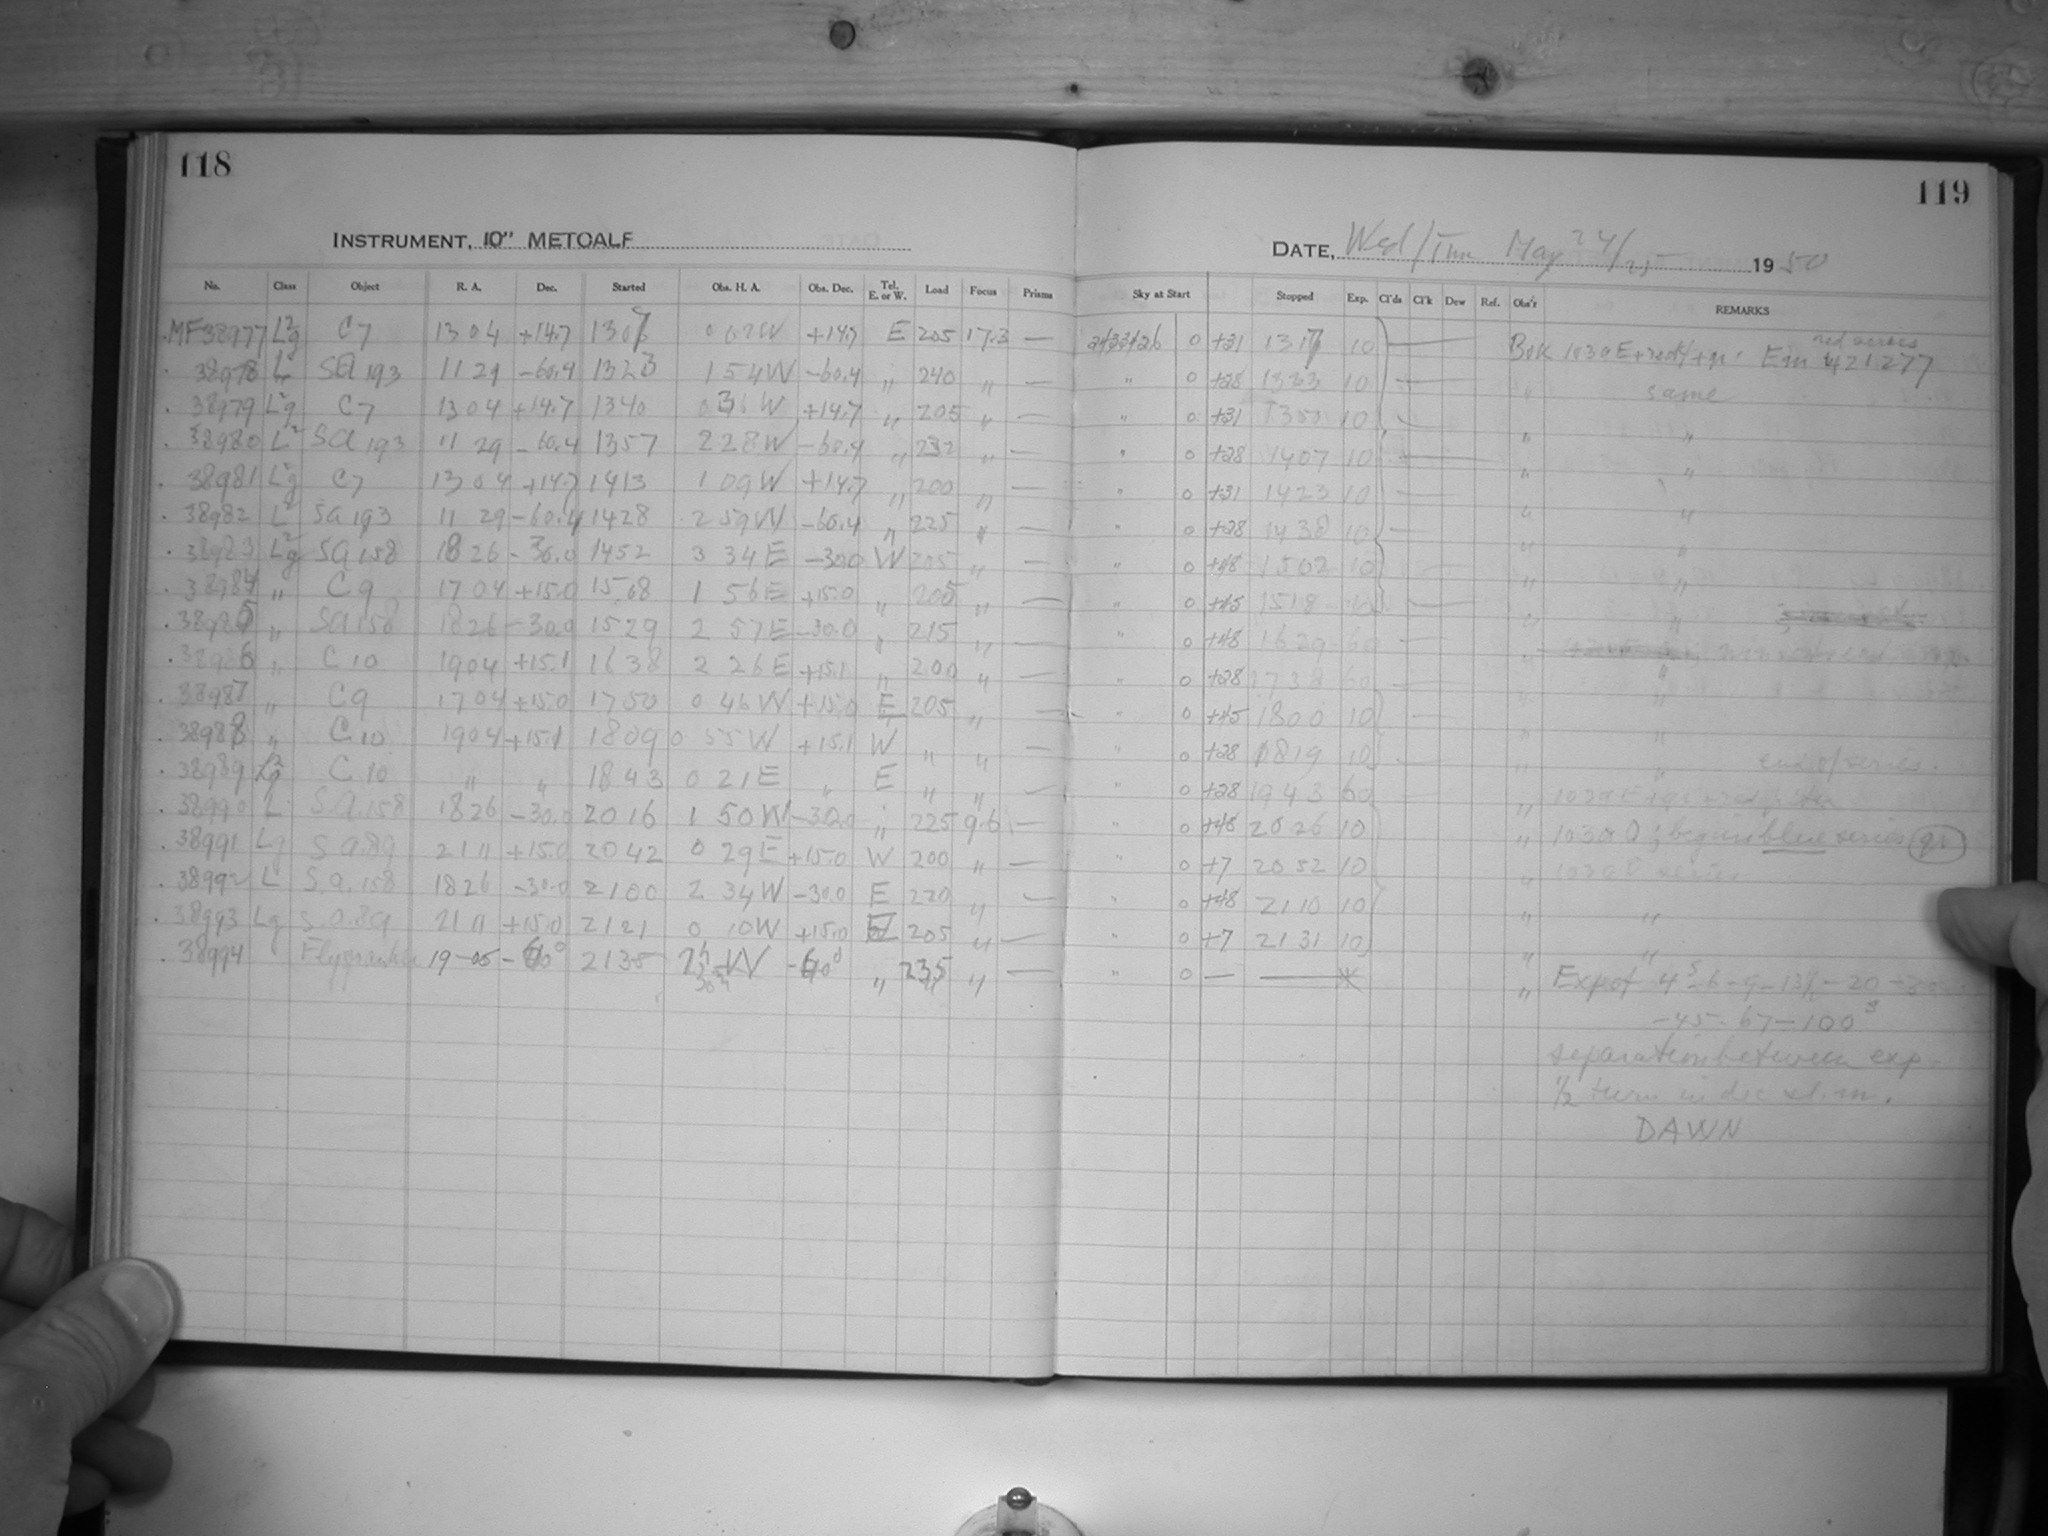 118
119
INSTRUMENT, 10" METCALF
DATE, Wed/Thu May 24/25 1950
No. Class Object R. A. Dec. Started Obs. H. A. Obs. Dec. Tel. E. or W. Load Focus Prisms Sky at Start Stopped Exp. Cl'ds Cl'k Dew Ref. Obs'r REMARKS
MF38977 C7 1304 +14.7 1307 +14.7 E 205 17.3 — 2433426 0 +31 1317 10 Bok 103aE+red
38978 SA 193 11 29 -60.4 1323 1 54W -60.4 " 240 " — " 0 +28 1333 10 " same
38979 C7 1304 +14.7 1340 0 36W +14.7 " 205 " — " 0 +31 1350 10 " "
38980 L² SA 193 11 29 -60.4 1357 2 28W -60.4 " 232 " — " 0 +28 1407 10 " "
38981 C7 1304 +14.7 1413 1 09W +14.7 " 200 " — " 0 +31 1423 10 " "
38982 L² SA 193 11 29 -60.4 1428 2 59W -60.4 " 225 " — " 0 +28 1438 10 " "
38983 SA 158 1826 -30.0 1452 3 34E -30.0 W 205 " — " 0 +48 1502 10 " "
38984 " C9 1704 +15.0 1508 1 56E +15.0 " 205 " — " 0 +45 1518 10 " "
38985 " SA 158 1826 -30.0 1529 2 57E -30.0 " 215 " — " 0 +48 1629 60 "
38986 " C10 1904 +15.1 1638 2 26E +15.1 " 200 " — " 0 +28 1738 60 " "
38987 " C9 1704 +15.0 1750 0 46W +15.0 E 205 " — " 0 +45 1800 10 " "
38988 " C10 1904 +15.1 1809 0 55W +15.1 W " " — " 0 +28 1819 10 " " end of series.
38989 C10 " " 1843 0 21E " E " " — " 0 +28 1943 60 " 103aE
38990 L S.A. 158 1826 -30.0 2016 1 50W -30.0 " 225 9.6 — " 0 +48 2026 10 " 103aO; begin blue series
38991 Lg S.A. 89 2111 +15.0 2042 0 29E +15.0 W 200 " — " 0 +7 2052 10 " 103aO series
38992 L S.A. 158 1826 -30.0 2100 2 34W -30.0 E 220 " — " 0 +48 2110 10 " "
38993 Lg S.A. 89 2111 +15.0 2121 0 10W +15.0 205 " — " 0 +7 2131 10 " "
38994 19-05 2135 " 235 " — " 0 — — " Exp of 4ˢ-6-9-13½-20-30
-45-67-100ˢ
separation between exp
½ turn in dec sl. m.
DAWN